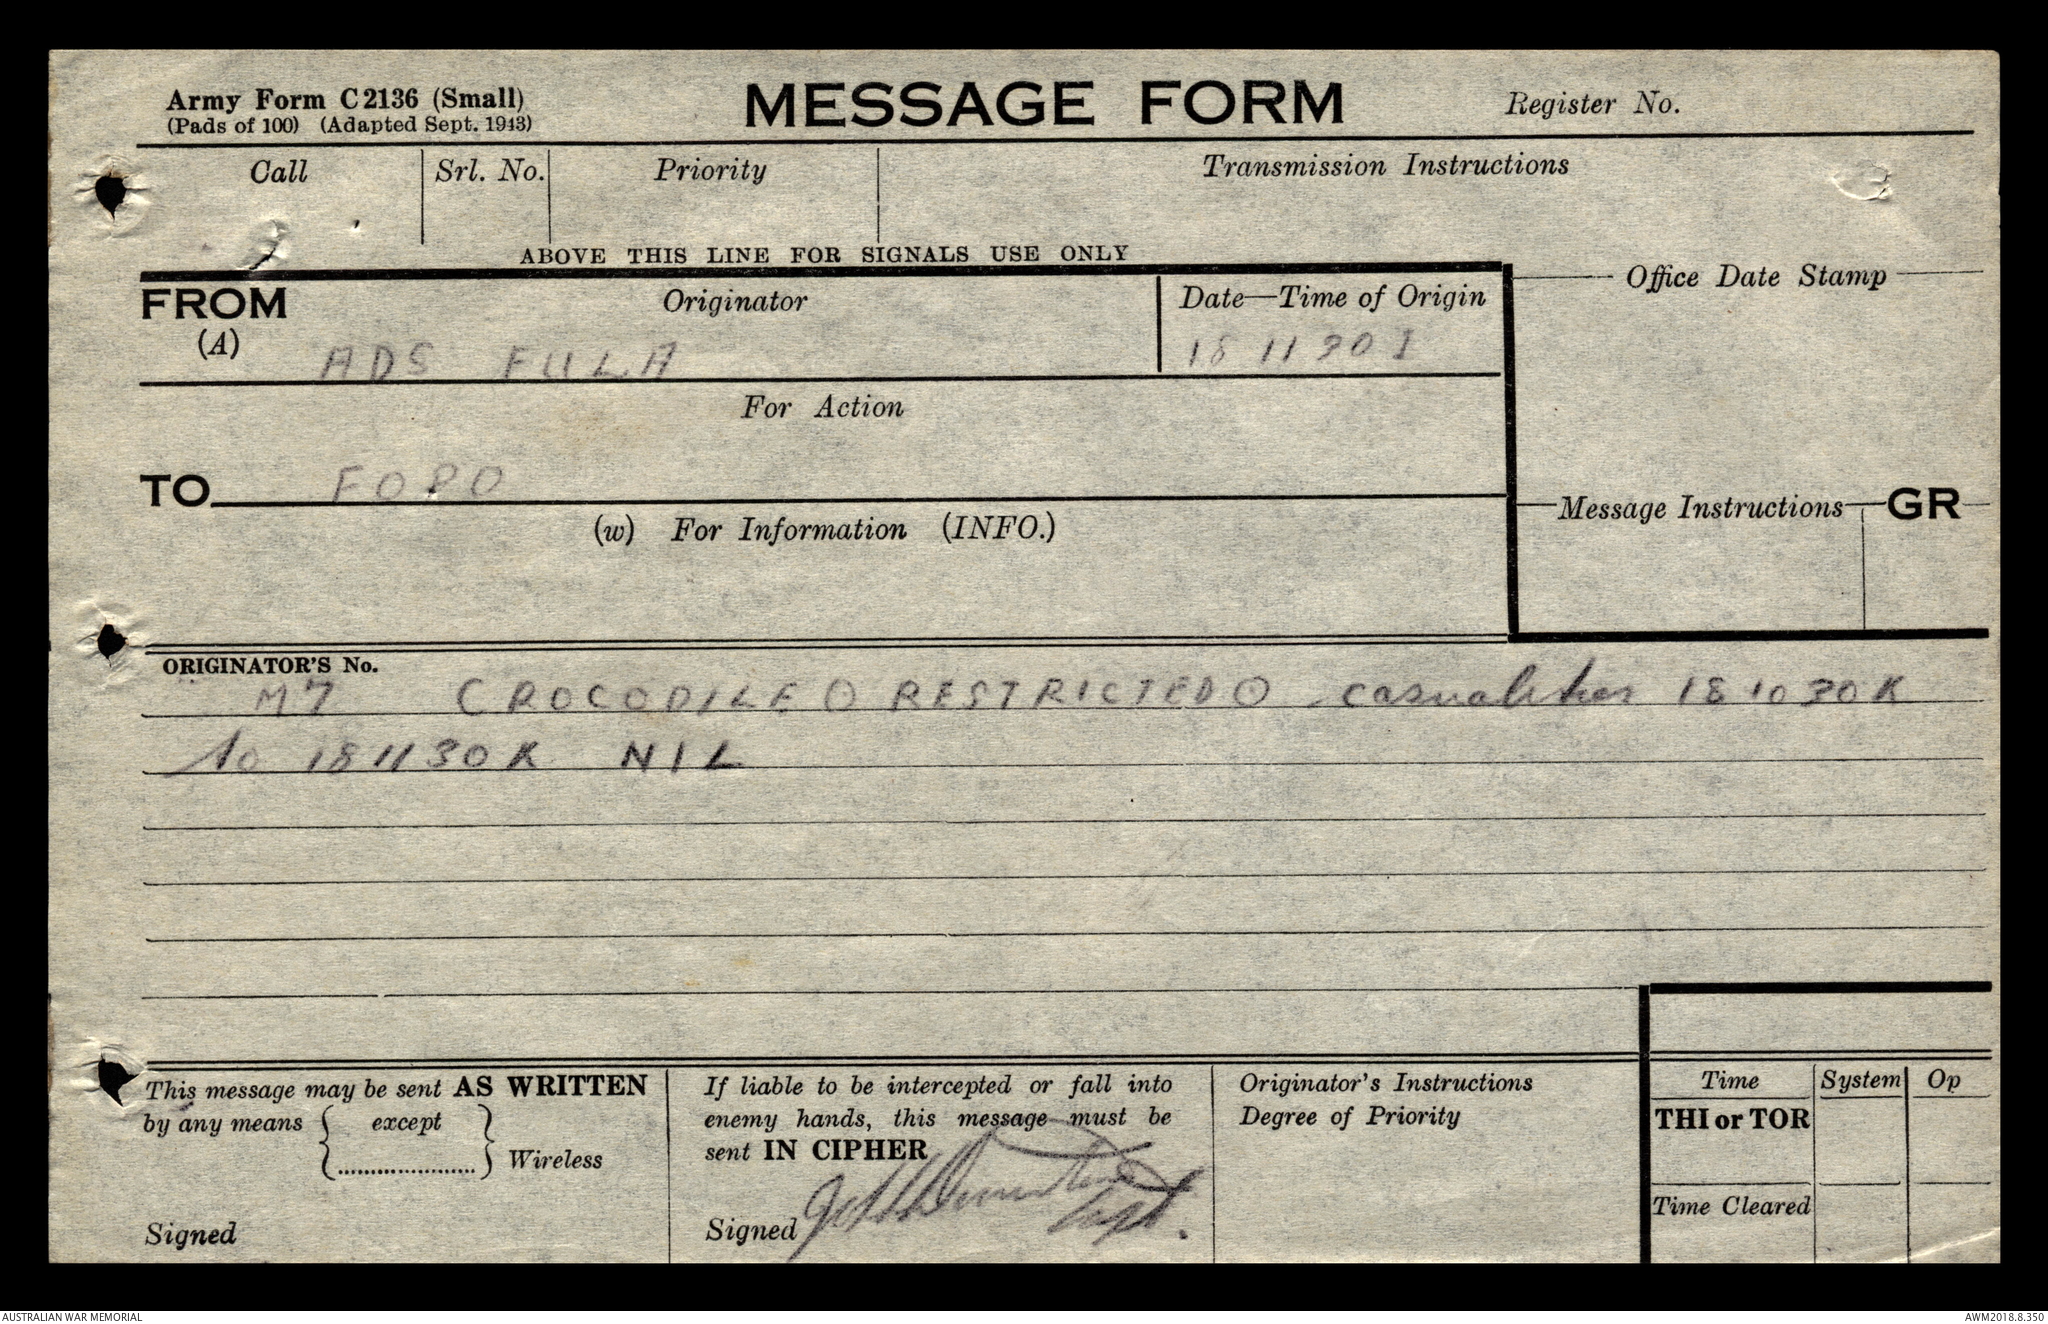 Army Form C2136 (Small)
(Pads of 100) (Adapted Sept. 1943)
MESSAGE FORM
Register No.
Call
Srl. No.
Priority
Transmission Instructions
ABOVE THIS LINE FOR SIGNALS USE ONLY
FROM
(A)
Originator
Date—Time of Origin
Office Date Stamp
ADS FULA
For Action
TO
FOPO
(w) For Information (INFO.)
Message Instructions
GR
ORIGINATOR'S No.
M7 CROCODILE ⊙ RESTRICTED ⊙ casualities 181030K
to 181130K NIL
This message may be sent AS WRITTEN
by any means { except
..................... } Wireless
Signed
If liable to be intercepted or fall into
enemy hands, this message must be
sent IN CIPHER
Signed
Capt.
Originator's Instructions
Degree of Priority
Time
System
Op
THI or TOR
Time Cleared
AUSTRALIAN WAR MEMORIAL
AWM2018.8.350